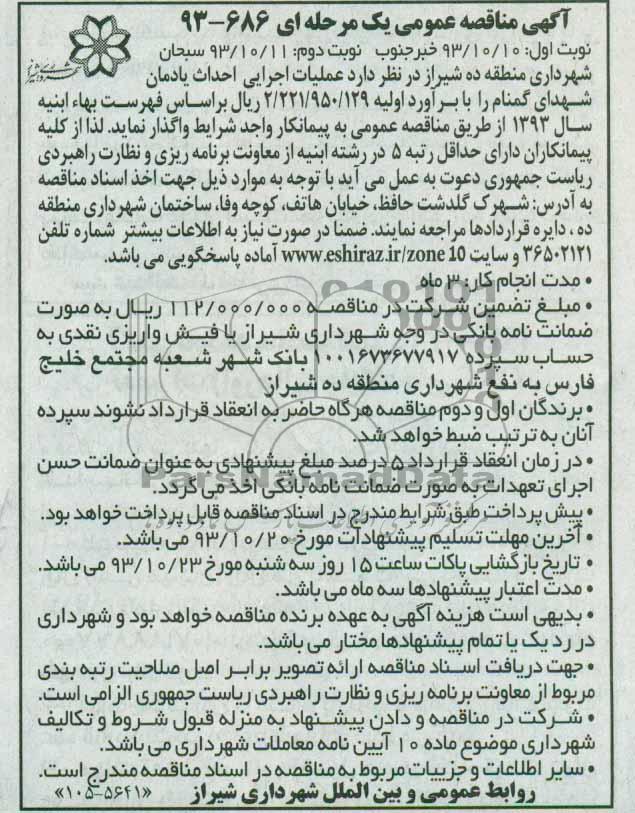 آگهی مناقصه عمومی یک مرحله ای ۶۸۶-۹۳
نوبت اول: ۹۳/۱۰/۱۰ خبرجنوب نوبت دوم: ۹۳/۱۰/۱۱ سبحان
شهرداری منطقه ده شیراز در نظر دارد عملیات اجرایی احداث یادمان
شهدای گمنام را با برآورد اولیه ۲/۲۲۱/۹۵۰/۱۲۹ ریال براساس فهرست بهاء ابنیه
سال ۱۳۹۳ از طریق مناقصه عمومی به پیمانکار واجد شرایط واگذار نماید. لذا از کلیه
پیمانکاران دارای حداقل رتبه ۵ در رشته ابنیه از معاونت برنامه ریزی و نظارت راهبردی
ریاست جمهوری دعوت به عمل می آید با توجه به موارد ذیل جهت اخذ اسناد مناقصه
به آدرس: شهرک گلدشت حافظ، خیابان هاتف، کوچه وفا، ساختمان شهرداری منطقه
ده، دایره قراردادها مراجعه نمایند. ضمنا در صورت نیاز به اطلاعات بیشتر شماره تلفن
۳۶۵۰۲۱۲۱ و سایت www.eshiraz.ir/zone 10 آماده پاسخگویی می باشد.
• مدت انجام کار: ۳ ماه
• مبلغ تضمین شرکت در مناقصه ۱۱۲/۰۰۰/۰۰۰ ریال به صورت
ضمانت نامه بانکی در وجه شهرداری شیراز یا فیش واریزی نقدی به
حساب سپرده ۱۰۰۱۶۷۳۶۷۷۹۱۷ بانک شهر شعبه مجتمع خلیج
فارس به نفع شهرداری منطقه ده شیراز
• برندگان اول و دوم مناقصه هرگاه حاضر به انعقاد قرارداد نشوند سپرده
آنان به ترتیب ضبط خواهد شد.
• در زمان انعقاد قرارداد ۵ درصد مبلغ پیشنهادی به عنوان ضمانت حسن
اجرای تعهدات به صورت ضمانت نامه بانکی اخذ می گردد.
• پیش پرداخت طبق شرایط مندرج در اسناد مناقصه قابل پرداخت خواهد بود.
• آخرین مهلت تسلیم پیشنهادات مورخ ۹۳/۱۰/۲۰ می باشد.
• تاریخ بازگشایی پاکات ساعت ۱۵ روز سه شنبه مورخ ۹۳/۱۰/۲۳ می باشد.
• مدت اعتبار پیشنهادها سه ماه می باشد.
• بدیهی است هزینه آگهی به عهده برنده مناقصه خواهد بود و شهرداری
در رد یک یا تمام پیشنهادها مختار می باشد.
• جهت دریافت اسناد مناقصه ارائه تصویر برابر اصل صلاحیت رتبه بندی
مربوط از معاونت برنامه ریزی و نظارت راهبردی ریاست جمهوری الزامی است.
• شرکت در مناقصه و دادن پیشنهاد به منزله قبول شروط و تکالیف
شهرداری موضوع ماده ۱۰ آیین نامه معاملات شهرداری می باشد.
• سایر اطلاعات و جزییات مربوط به مناقصه در اسناد مناقصه مندرج است.
روابط عمومی و بین الملل شهرداری شیراز «۱۰۵-۵۶۴۱»
ParsNamadData